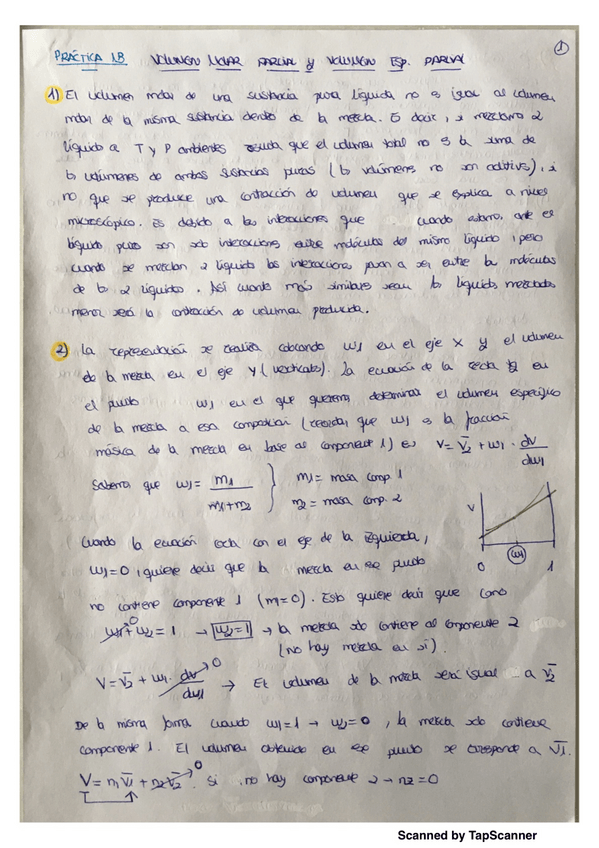 ①
PRÁCTICA 1.B VOLUMEN MOLAR PARCIAL y VOLUMEN ESP. PARCIAL
1) El volumen molar de una sustancia pura líquida no es igual al volumen
molar de la misma sustancia dentro de la mezcla. Es decir, si mezclamos 2
líquidos a T y P ambientes resulta que el volumen total no es la suma de
los volúmenes de ambas sustancias puras (los volúmenes no son aditivos), si
no que se produce una contracción de volumen que se explica a nivel
microscópico. Es debido a las interacciones que cuando estamos ante el
líquido puro son solo interacciones entre moléculas del mismo líquido, pero
cuando se mezclan 2 líquidos las interacciones pasan a ser entre las moléculas
de los 2 líquidos. Así cuanto más similares sean los líquidos mezclados
menor será la contracción de volumen producida.
2) La representación se realiza colocando w1 en el eje X y el volumen
de la mezcla en el eje Y (verticales). La ecuación de la recta tg en
el punto w1 en el que queremos determinar el volumen específico
de la mezcla a esa composición (recordar que w1 es la fracción
másica de la mezcla en base al componente 1) es V = V̄2 + w1 · dv/dw1
Sabemos que w1 = m1/(m1+m2) } m1 = masa comp. 1
m2 = masa comp. 2
V
0 w1 1
Cuando la ecuación corta con el eje de la izquierda,
w1=0, quiere decir que la mezcla en ese punto
no contiene componente 1 (m1=0). Esto quiere decir que como
w1 + w2 = 1 → w2=1 → la mezcla solo contiene al componente 2
0
(no hay mezcla en sí).
V = V̄2 + w1 · dv/dw1 → 0 → El volumen de la mezcla será igual a V̄2
De la misma forma cuando w1=1 → w2=0, la mezcla solo contiene
componente 1. El volumen obtenido en ese punto se corresponde a V̄1.
V = n1V̄1 + n2V̄2 → 0 . Si no hay componente 2 → n2=0
Scanned by TapScanner